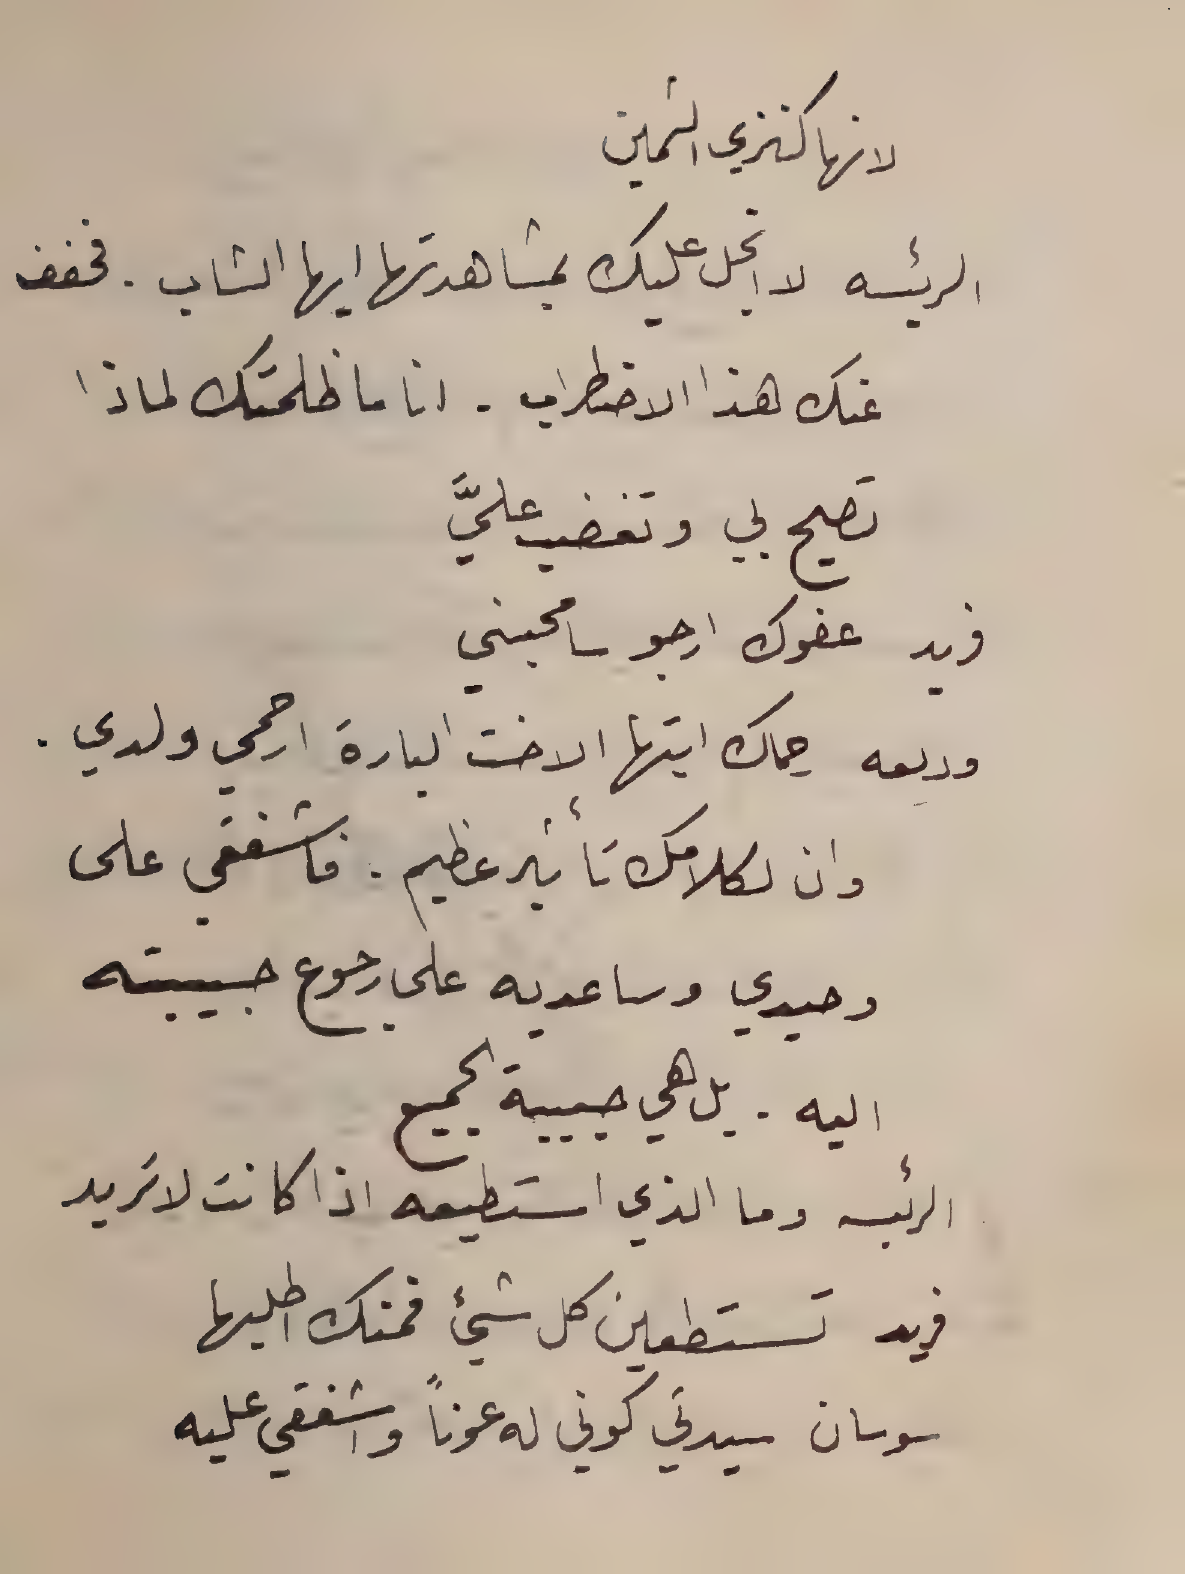 لانها كنزي الثمين
الرئيسه لا انجل عليك بمشاهدتها ايها الشاب . فخفف
عنك هذا الاضطراب . انا ما ظلمتك لماذا
تصيح بي وتغضب عليَّ
فريد عفوك ارجو سامحيني
وديعه حماك ايتها الاخت البارة ارحمي ولدي .
وان لكلامك تأثير عظيم . فاشفقي على
وحيدي وساعديه على رجوع حبيبته
اليه . بل هي حبيبة الجميع
الرئيسه وما الذي استطيعه اذا كانت لا تريد
فريد تستطعين كل شيئ فمنك اطلبها
سوسان سيدتي كوني له عوناً واشفقي عليه